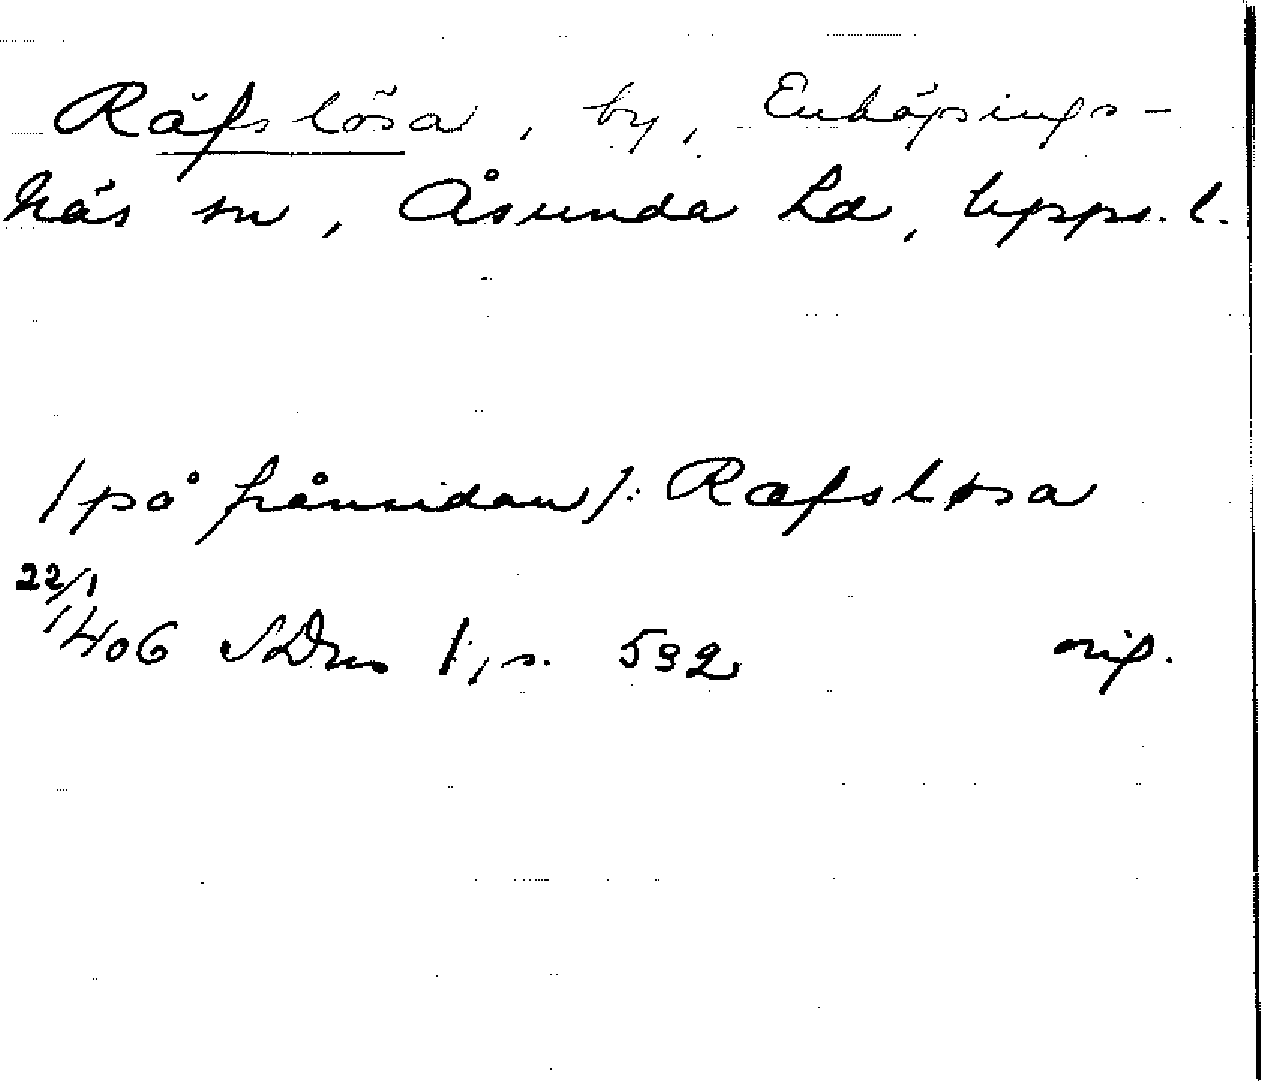 Räfslösa, by, Enköpings-
Näs sn, Åsunda hd, Upps. l.
/på frånsidan/: Ræfsløsa
22/1
1406 SDns 1, s. 592 orig.